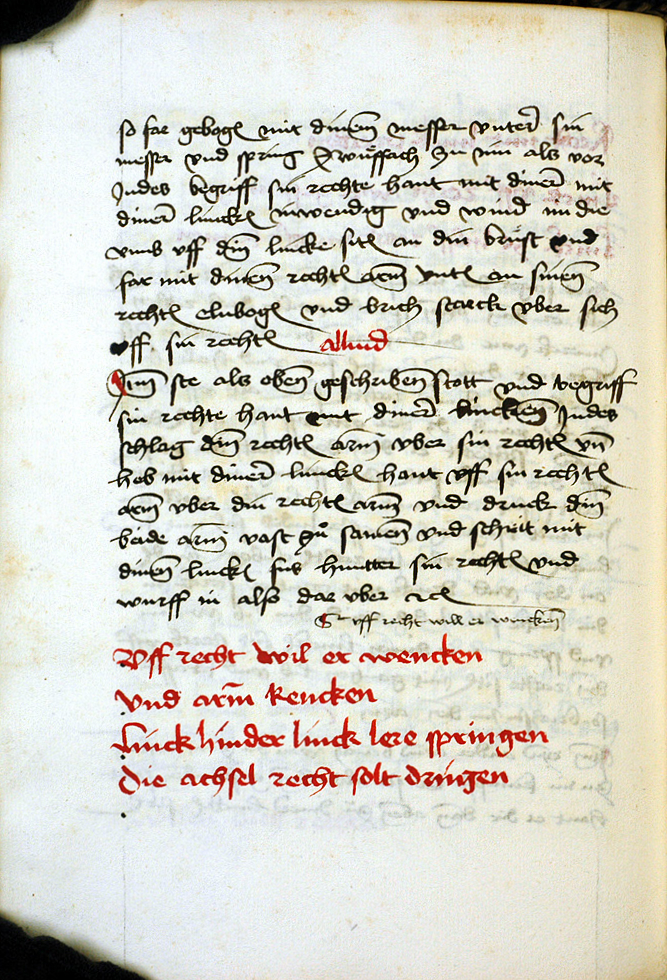 so far gebogē mit dinem̄ messer vnterī sin
messer und spring zwüffach zu im als vor
Jndes begriff sin rechte hant mit dinerī mit
dinerī linckē inwendig vnd wind im die
vmb vff din̄ lincke sitē an din brüst vnd
far mit dinem̄ rechtē arm̄ vntē an sinem̄
rechtē elnbogē vnd brich starck vber sich
vff sin rechtē Alliud
Jtm̄ ste als oben̄ geschriben stott vnd begriff
sin rechte hant mit dinerī lincken̄ Jndes
schlag din̄ rechtē arm̄ vber sin rechtē vn̄
heb mit dinerī linckē hant vff sin rechtē
arm̄ vber din rechtē arm̄ vnd druck din̄
beide arm̄ vast zů samen̄ vnd schrit mit
dinem̄ linckē fus hintter sin rechtē vnd
wurff in also dar vber etc
vff recht will er wincken̄
Vff recht wil er wencken
Vnd arm̄ Rencken
Linck hinder linck lere springen
Die achsel recht solt dringen